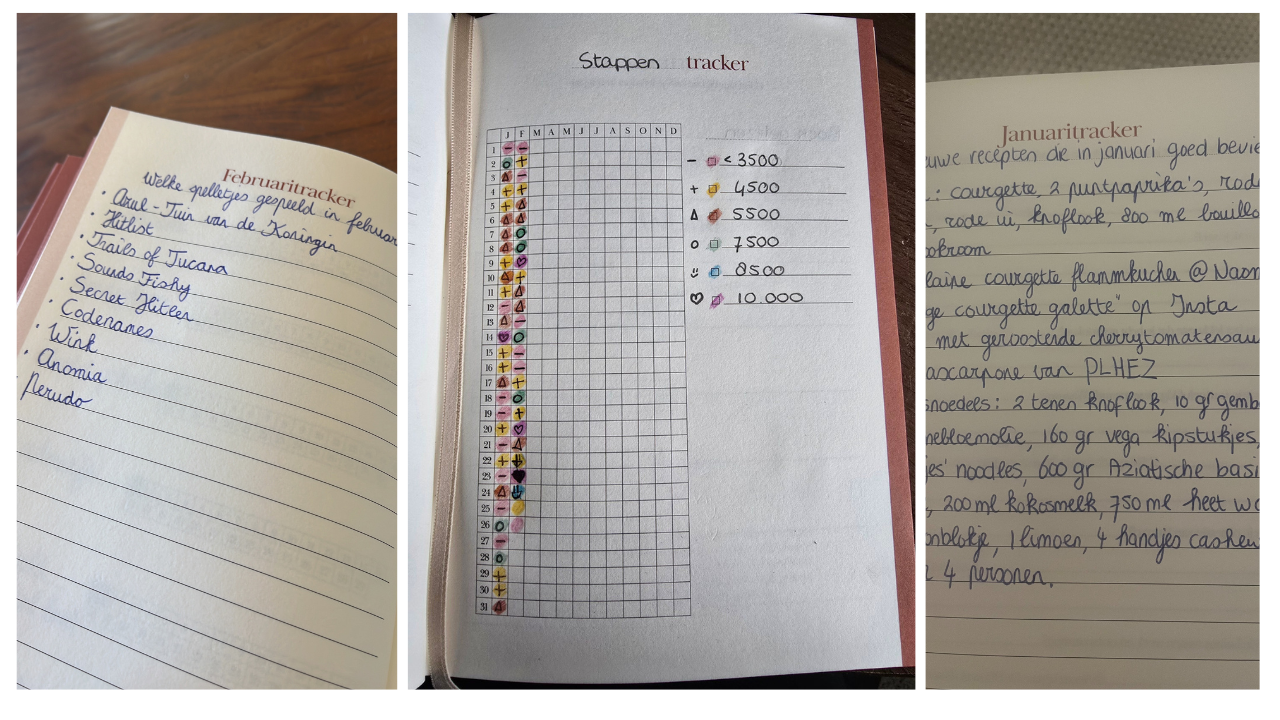 Februaritracker
Welke spelletjes gespeeld in februar
• Azul - Tuin van de Koningin
• Hitlist
• Trails of Tucana
• Sounds Fishy
• Secret Hitler
• Codenames
• Wink
• Anomia
Perudo
Stappen tracker
J F M A M J J A S O N D
1 - -
2 o +
3 Δ -
4 + +
5 + Δ
6 Δ Δ
7 Δ o
8 Δ o
9 + ♡
10 Δ +
11 + Δ
12 - Δ
13 Δ -
14 ♡ o
15 + -
16 + -
17 Δ +
18 - o
19 - +
20 + ♡
21 - Δ
22 +
23 - ♥
24 Δ
25 -
26 o
27 -
28 o
29 +
30 +
31 Δ
- □ < 3500
+ □ 4500
Δ □ 5500
o □ 7500
□ 8500
♡ □ 10.000
Januaritracker
uwe recepten die in januari goed bevie
.: courgette, 2 puntpaprika's, rode
, rode ui, knoflook, 800 ml bouillo
okroom
laine courgette flammkuchen @ Naom
ge courgette galette" op Insta
met geroosterde cherrytomatensau
ascarpone van PLHEZ
snoedels: 2 tenen knoflook, 10 gr gemb
nebloemolie, 160 gr vega kipstukjes,
jes' noodles, 600 gr Aziatische basi
, 200 ml kokosmelk, 750 ml heet wa
onblokje, 1 limoen, 4 handjes cashew
4 personen.